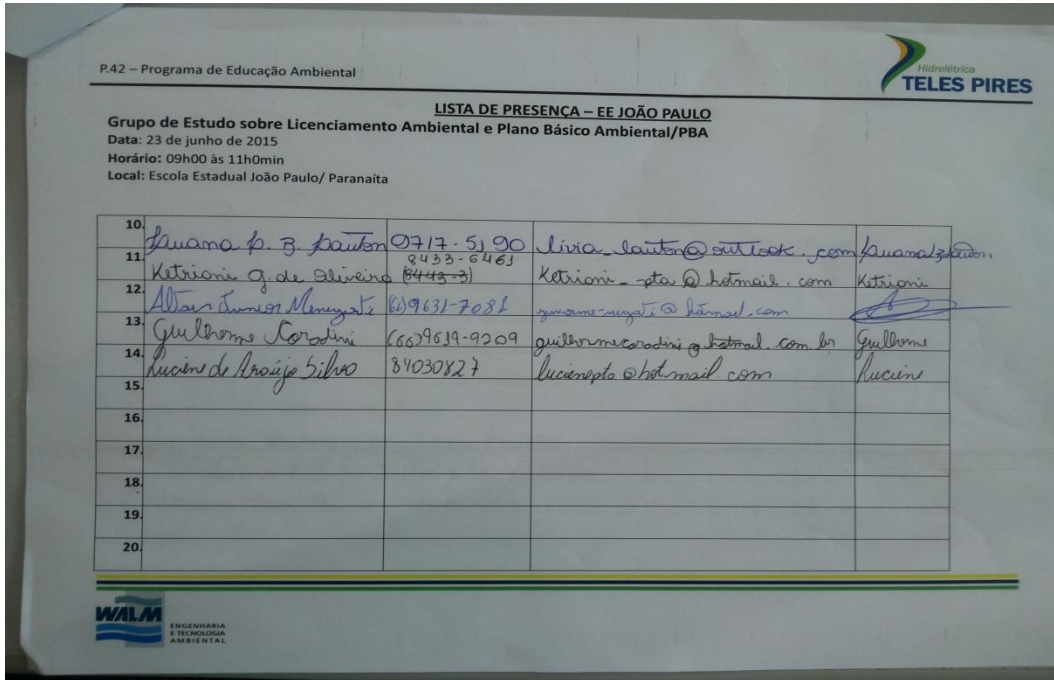 P.42 – Programa de Educação Ambiental
Hidrelétrica
TELES PIRES
LISTA DE PRESENÇA – EE JOÃO PAULO
Grupo de Estudo sobre Licenciamento Ambiental e Plano Básico Ambiental/PBA
Data: 23 de junho de 2015
Horário: 09h00 às 11h0min
Local: Escola Estadual João Paulo/ Paranaíta
10. Luana p. B. Lauton 9717-5190 livia_lauton@outlook.com Luana
11. Ketrioni g. de Oliveira 8433-6461 (8443-3) Ketrioni_pta@hotmail.com Ketrioni
12. Altair Junior (66)9631-7081 @hotmail.com
13. Guilherme Corodini (66)9639-9209 guilhermecorodini@hotmail.com.br Guilherme
14. Luciene de Araújo Silva 84030827 lucienepta@hotmail.com Luciene
15.
16.
17.
18.
19.
20.
WALM
ENGENHARIA
E TECNOLOGIA
AMBIENTAL